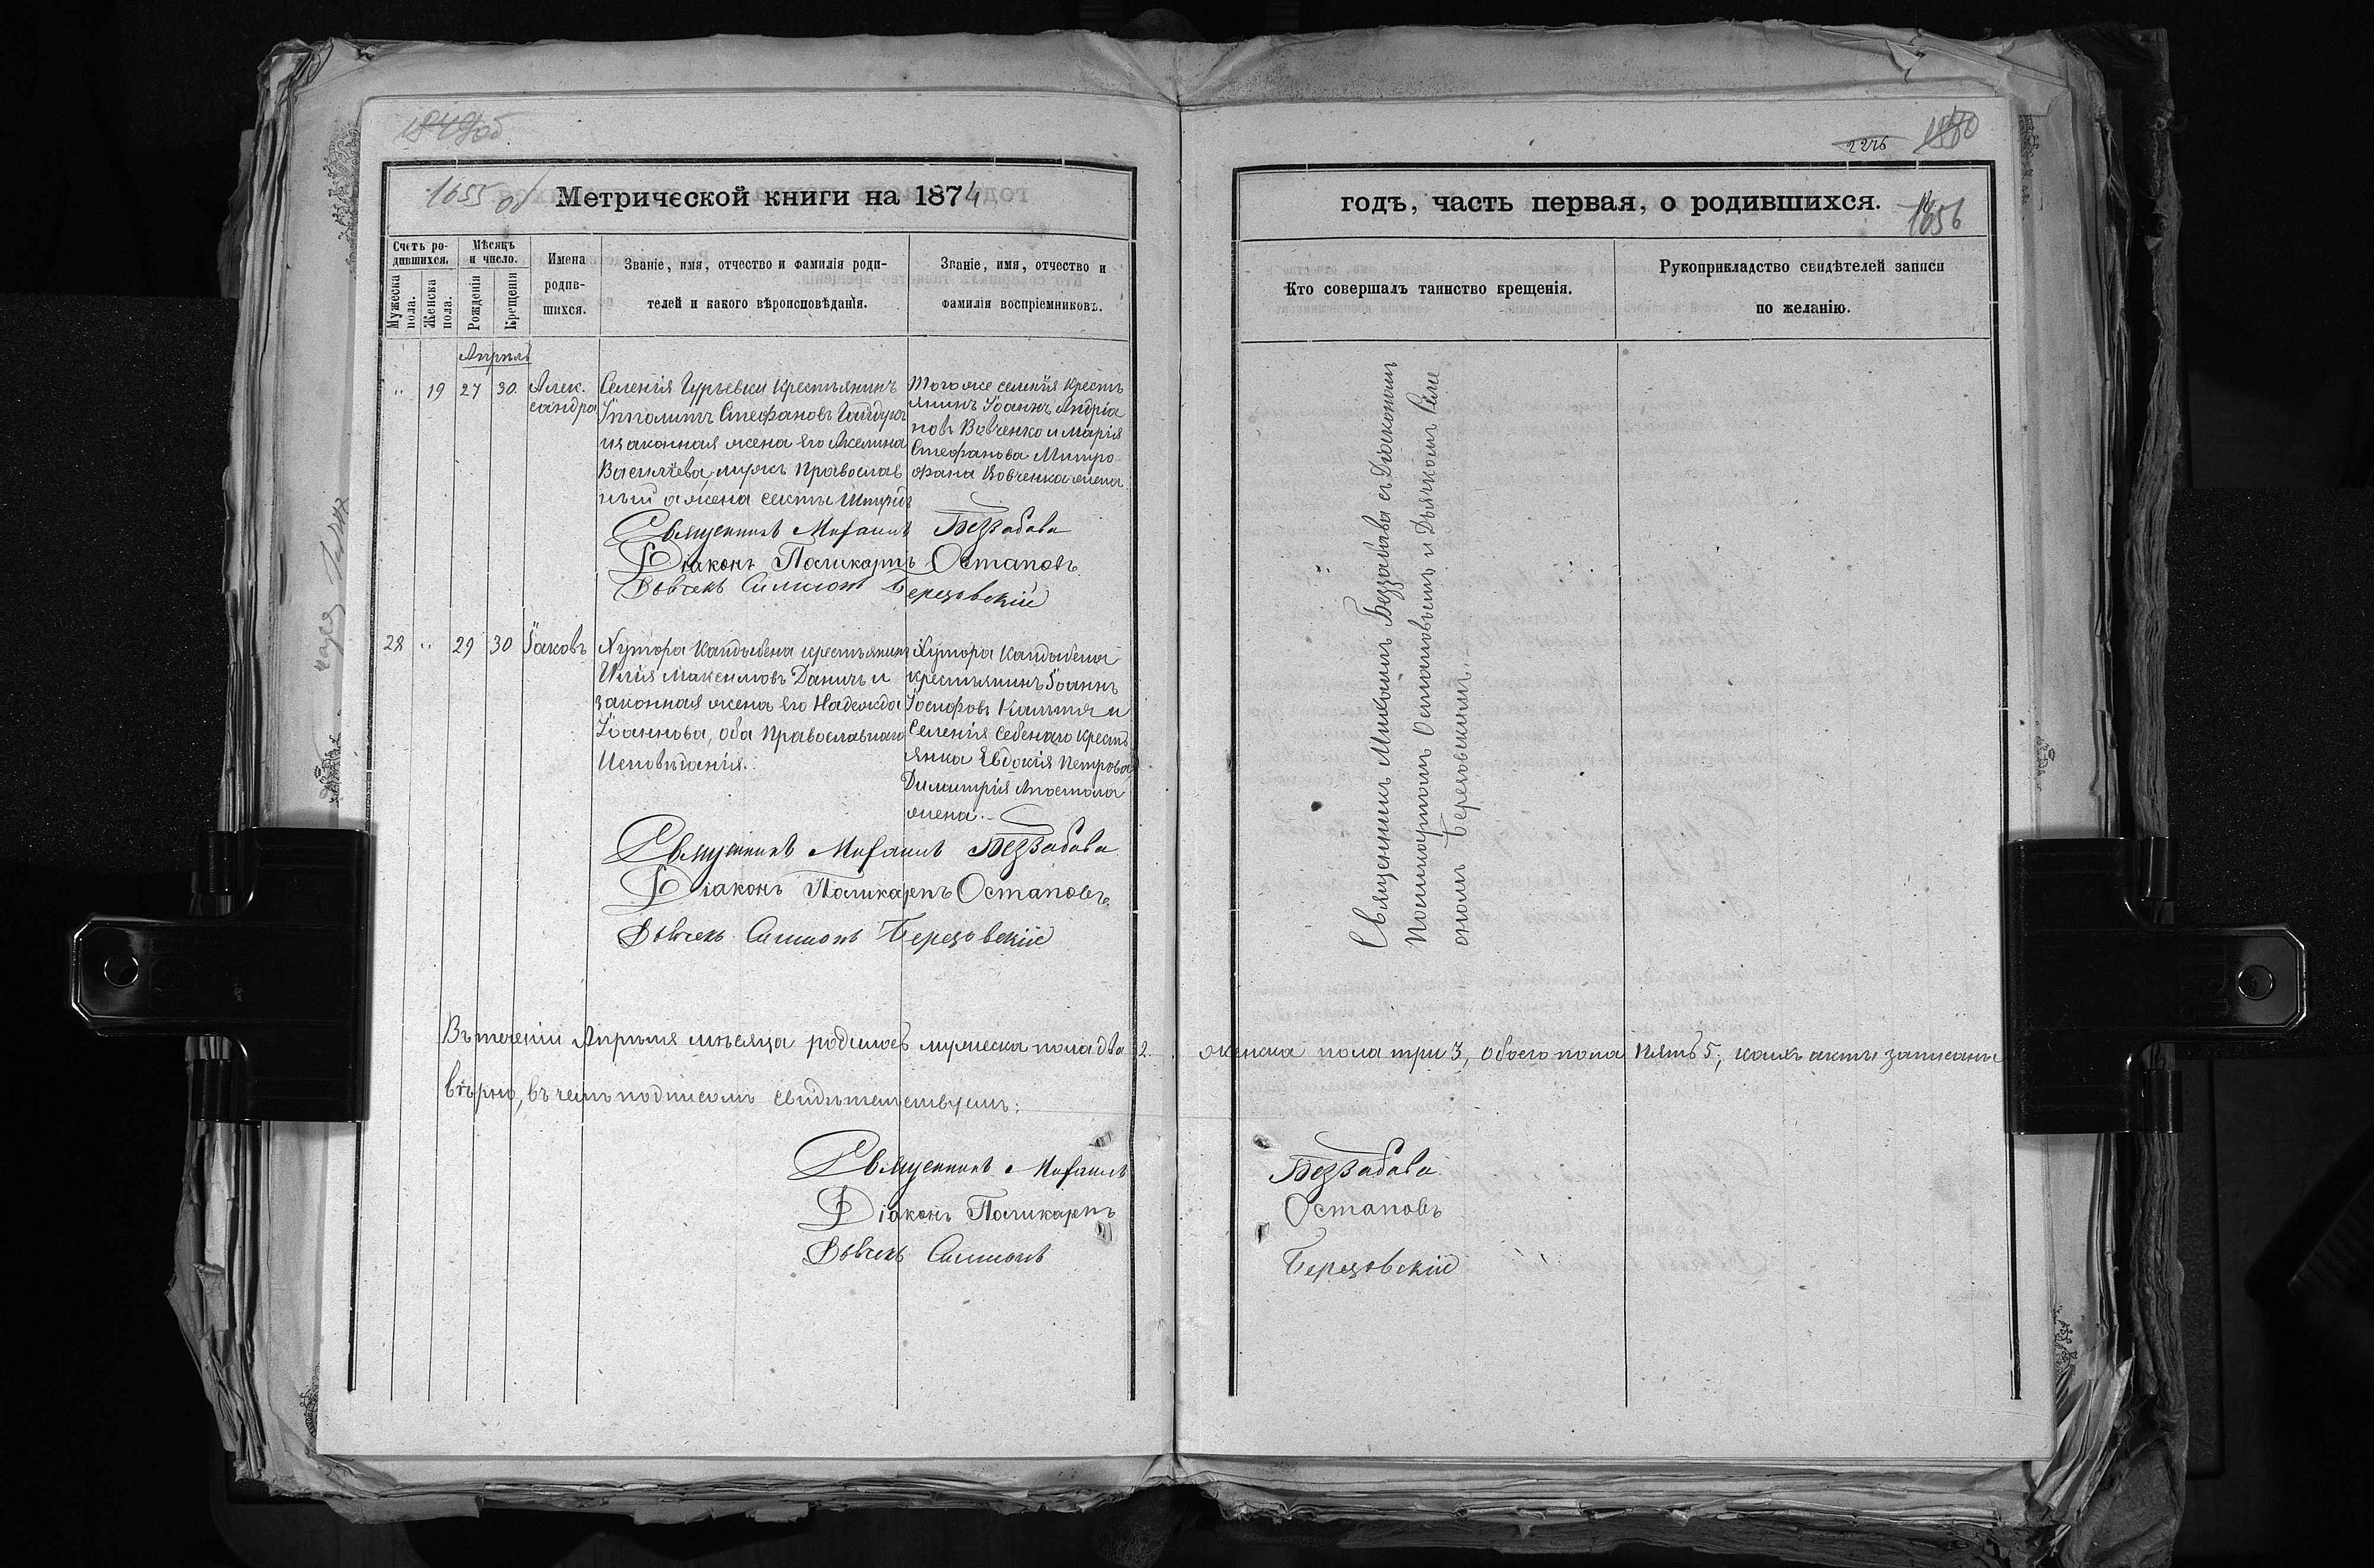 1849об
1655 об
Метрической книги на 1874
Счетъ родившихся.
Мѣсяцъ и число.
Мужеска пола.
Женска пола.
Рожденія
Крещенія
Имена родившихся.
Званіе, имя, отчество и фамилія роди-
телей и какого вѣроисповѣданія.
Званіе, имя, отчество и
фамилія воспріемниковъ.
Апрѣль
19 27 30. Алек.
сандра
Селенія Гурьевки крестьянинъ
Ипполитъ Стефановъ
и законная жена его Акелина
Васильева, мужъ Православ
ный а жена секты
Того же селенія крестъ
янинъ Іоаннъ Андріа
новъ Вовченко и Марія
Стефанова Митро
фана Вовченка жена
Священникъ Михаилъ Беззабава
Діаконъ Поликарпъ Остаповъ
Дьячекъ Симеонъ Березовскій
28 " 29 30 Іаковъ
Хутора Кандыбена крестьянинъ
Илія Максимовъ Даничъ и
законная жена его Надежда
Іоаннова, оба Православнаго
Исповѣданія.
Хутора Кандыбена
крестьянинъ Іоаннъ
Іосифовъ и
Селенія Себенаго крестъ
янка Евдокія Петрова
Димитрія Апостола
жена.
Священникъ Михаилъ Беззабава
Діаконъ Поликарпъ Остаповъ
Дьячекъ Симеонъ Березовскій
Въ теченіи Апрѣля мѣсяца родилось мужеска пола два 2. женска пола три 3, обоего пола пять 5; коихъ акты записаны
вѣрно, въ чемъ подписомъ свидѣтельствуемъ:
Священникъ Михаилъ Беззабава
Діаконъ Поликарпъ Остаповъ
Дьячекъ Симеонъ Березовскій
1656
годъ, часть первая, о родившихся.
Кто совершалъ таинство крещенія.
Рукоприкладство свидѣтелей записи
по желанію.
Священникъ Михаилъ Беззабава съ Діакономъ
Поликарпомъ Остаповымъ и Дьячкомъ Симе
ономъ Березовскимъ.